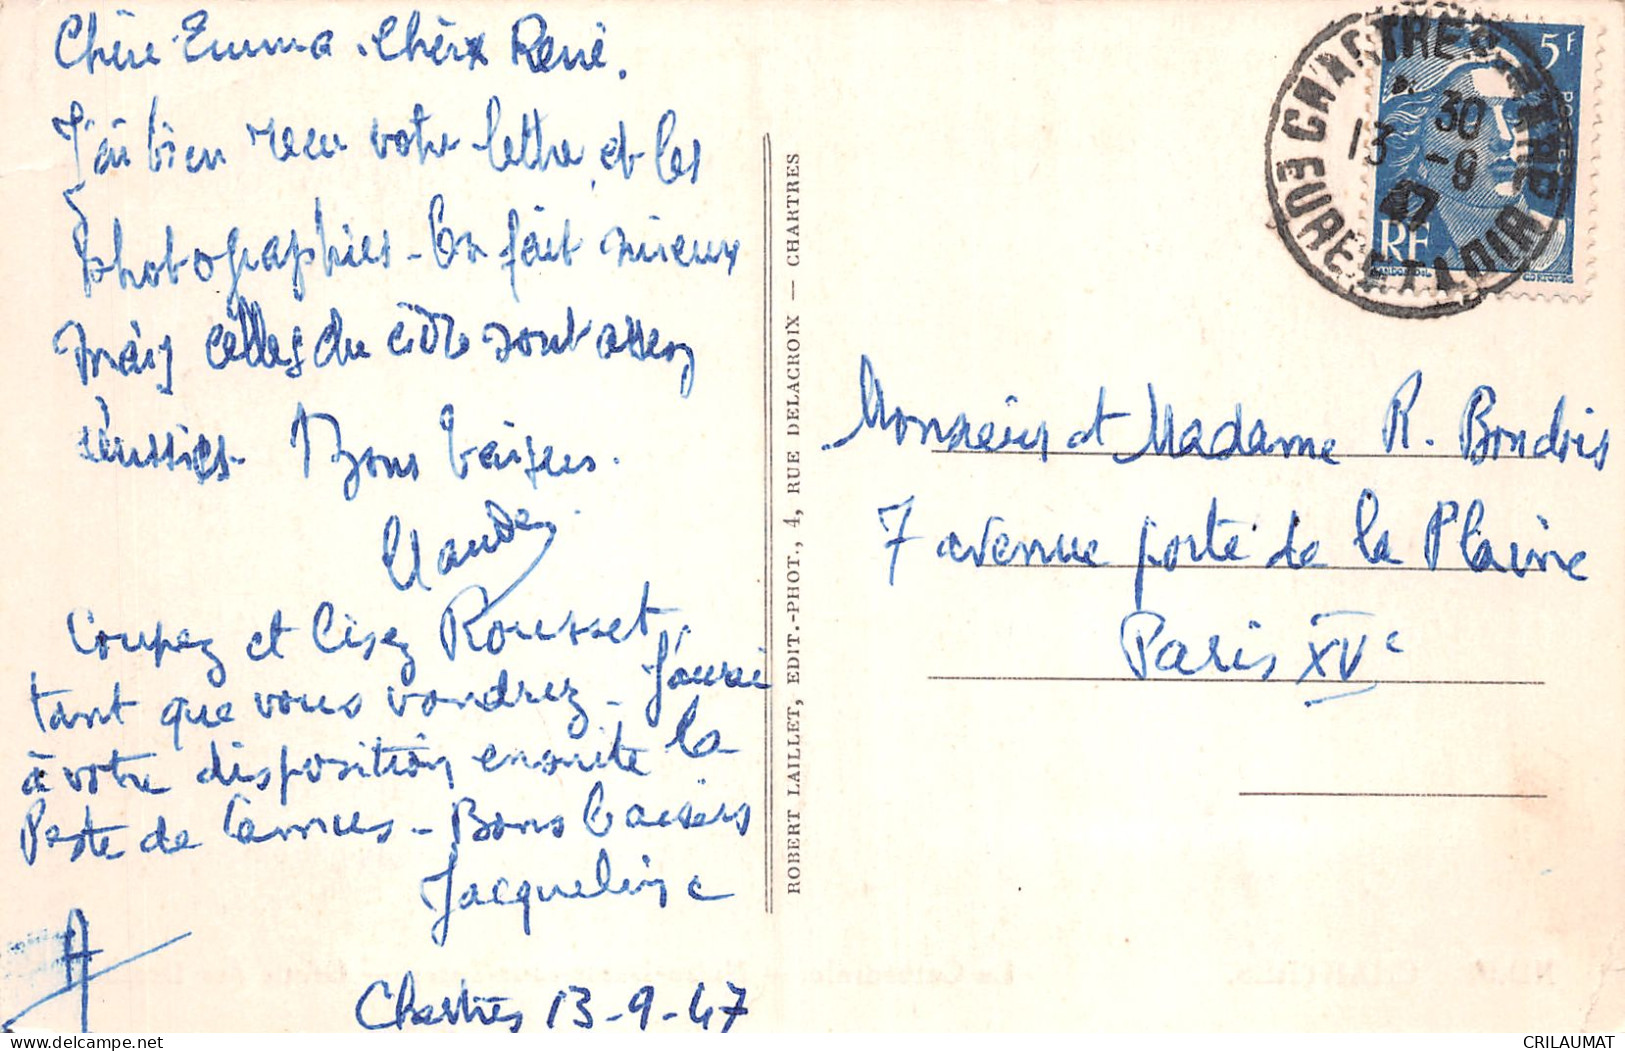 Chère Emma. Chèrx René.
J'ai bien reçu votre lettre et les
photographies - On fait mieux
mais celles du cidre sont assez
réussies. Bons baisers.
Claude.
Coupez et lisez Rousset
tant que vous voudrez - J'aurai
à votre disposition ensuite la
Peste de Camus - Bons baisers
Jacqueline
Chartres 13-9-47
ROBERT LAILLET, EDIT.-PHOT., 4, RUE DELACROIX — CHARTRES
CHARTRES
EURE ET LOIR
30
13 -9
47
5F
POSTES
RF
GANDON DEL.
Monsieur et Madame R. Bondois
7 avenue porte de la Plaine
Paris XVe
CRILAUMAT